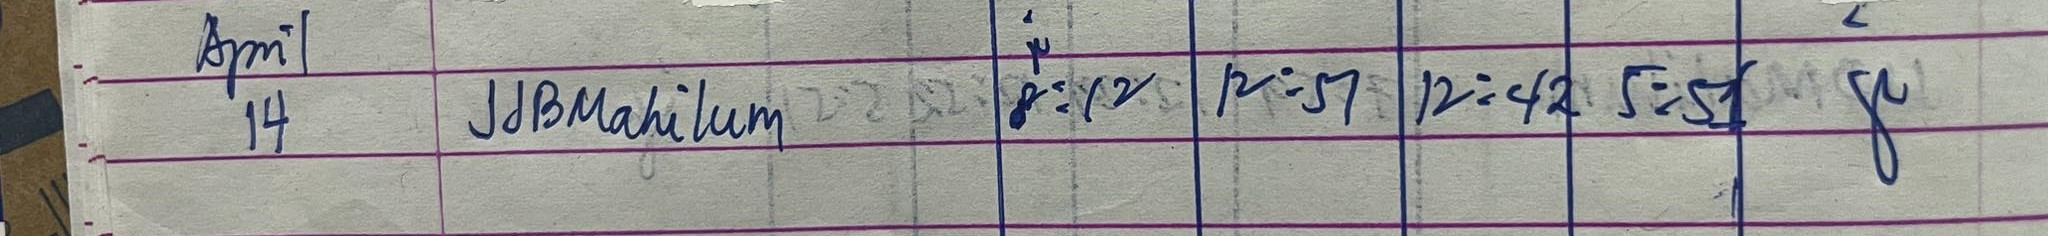 April
14 JJBMahilum 8:12 12:51 12:42 5:51